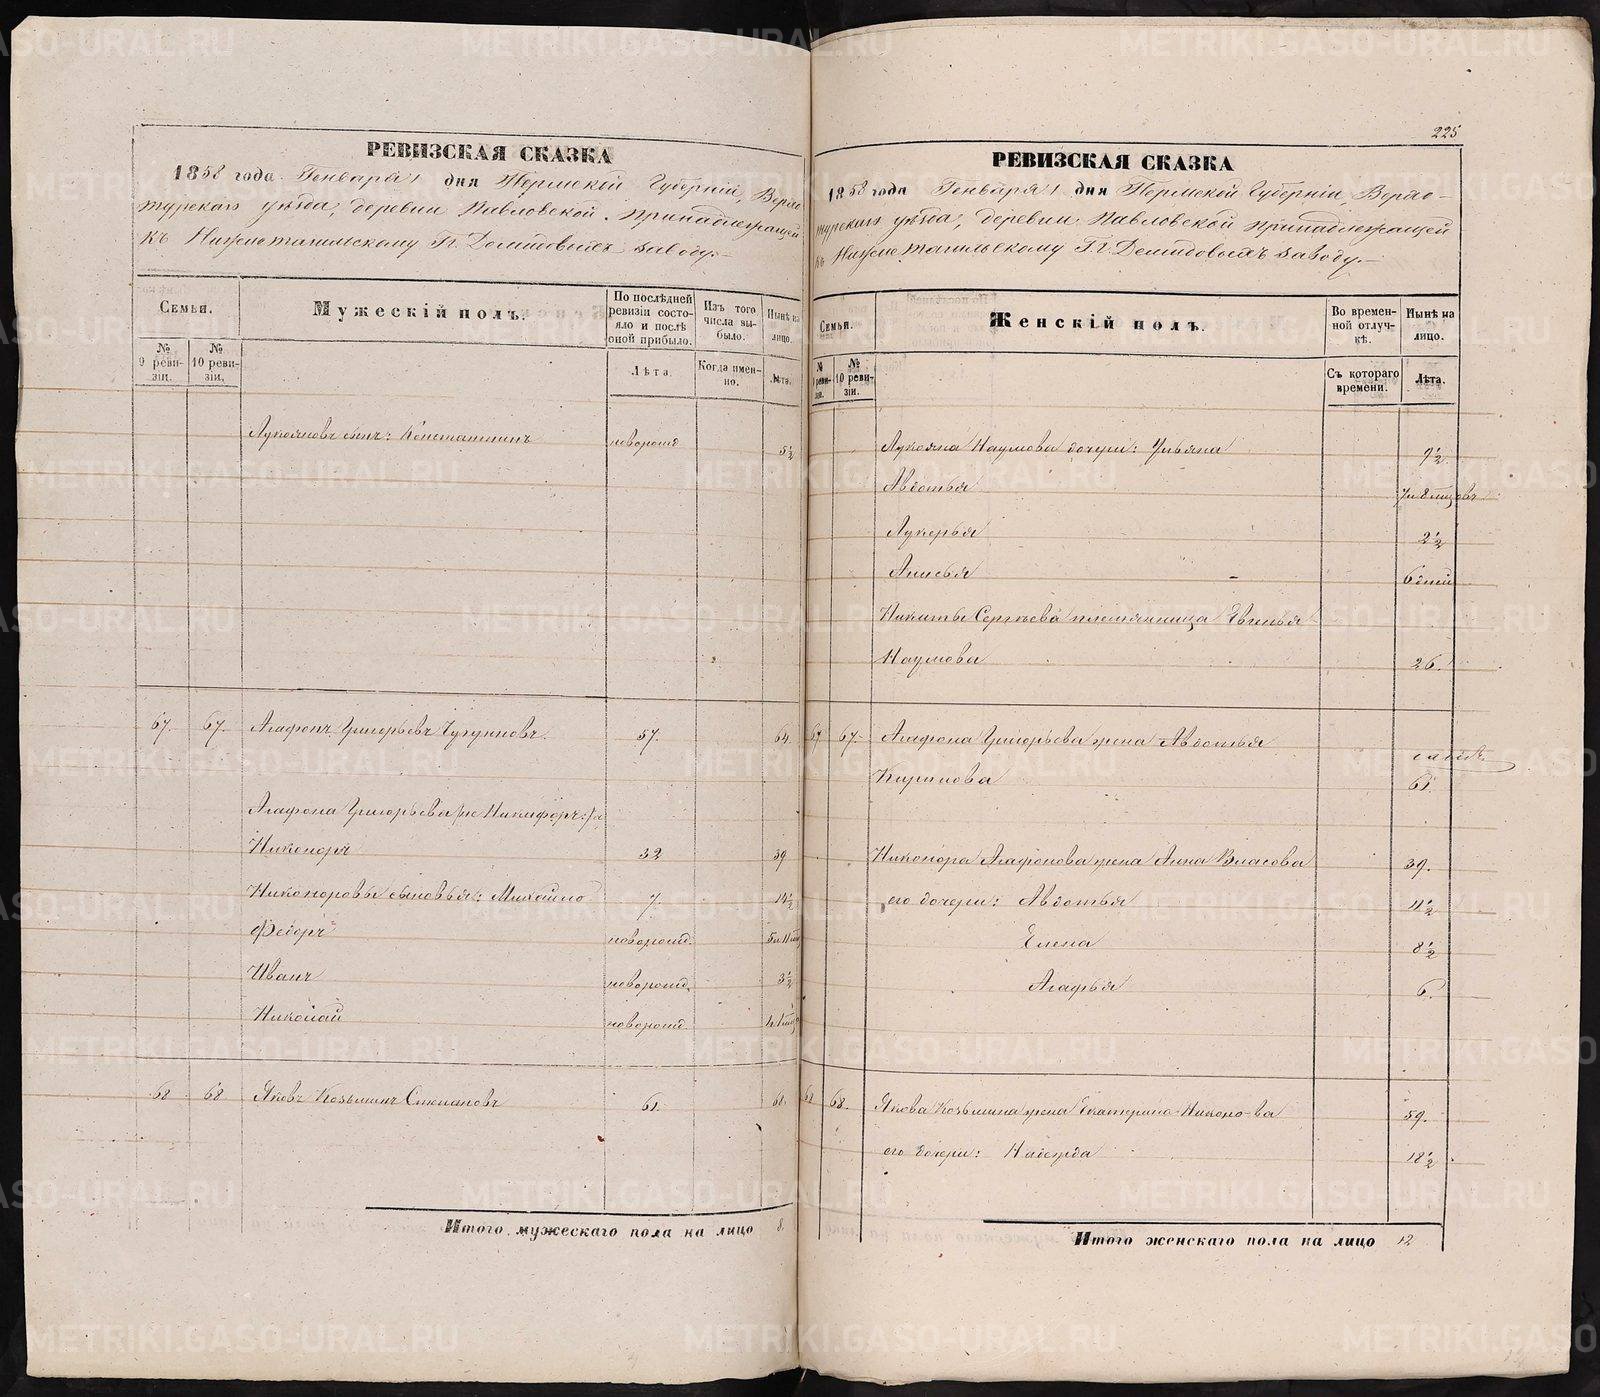 РЕВИЗСКАЯ СКАЗКА
1858 года Генваря 1 дня Пермской Губерніи, Верхо-
турскаго уѣзда, деревни Павловской, принадлежащей
къ Нижнетагильскому Гг. Демидовыхъ заводу.
Семьи.
№ 9 ревизіи.
№ 10 ревизіи.
Мужескій полъ.
По послѣдней ревизіи состояло и послѣ оной прибыло.
Лѣта.
Изъ того числа выбыло.
Когда именно.
Нынѣ на лицо.
Лѣта.
Лукояновъ сынъ: Константинъ новорожд. 5½
67. 67. Агафонъ Григорьевъ Чугуновъ. 57. 64.
Агафона Григорьева
Никоноръ 32 39
Никоноровы сыновья: Михайло 7. 14½
Федоръ новорожд.
Иванъ новорожд. 3½
Николай новорожд.
68 68 Яковъ Козьминъ Степановъ 61. 68.
Итого мужескаго пола на лицо 8.
225
РЕВИЗСКАЯ СКАЗКА
1858 года Генваря 1 дня Пермской Губерніи Верхо-
турскаго уѣзда, деревни Павловской принадлежащей
къ Нижнетагильскому Гг. Демидовыхъ заводу.
Семьи.
№ 9 ревизіи.
№ 10 ревизіи.
Женскій полъ.
Во временной отлучкѣ.
Съ котораго времени.
Нынѣ на лицо.
Лѣта.
Лукояна Наумова дочери: Ульяна 9½
Авдотья
Лукерья 2½
Анисья 6 дней
Никиты Сергѣева племянница Евгенья
Наумова 26.
67 67. Агафона Григорьева жена Авдотья
Кирилова 61.
Никонора Агафонова жена Анна Власова 39.
его дочери: Авдотья 11½
Елена 8½
Агафья 6.
68 68. Якова Козьмина жена Екатерина Никонова 59.
его дочери: Надежда 18½
Итого женскаго пола на лицо 12
METRIKI.GASO-URAL.RU